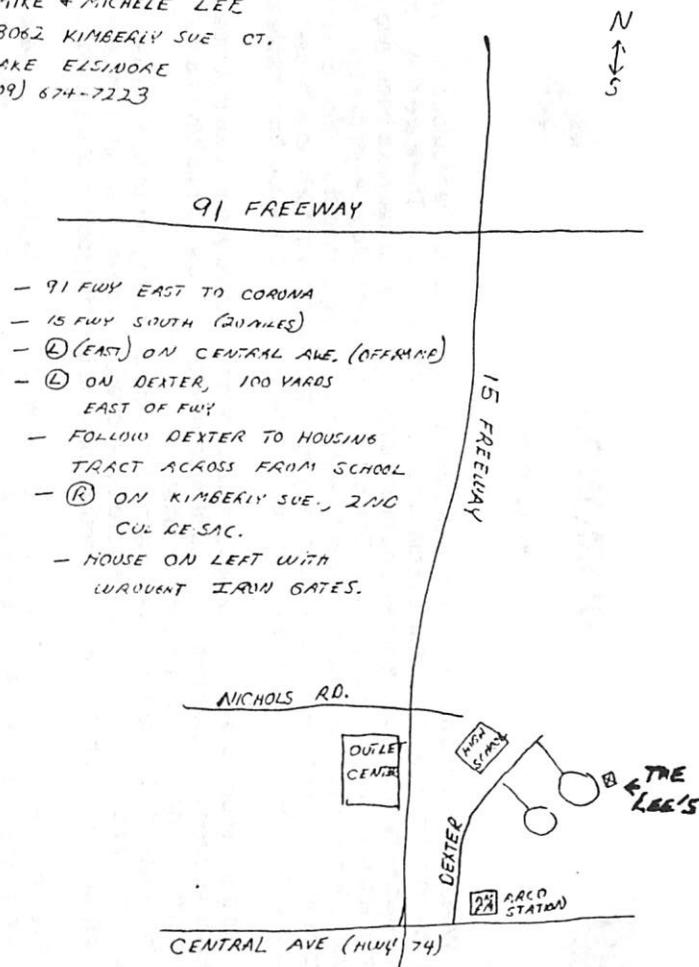 MIKE & MICHELE LEE
3062 KIMBERLY SUE CT.
AKE ELSINORE
09) 674-7223
N
S
91 FREEWAY
- 91 FWY EAST TO CORONA
- 15 FWY SOUTH (20 MILES)
- (L) (EAST) ON CENTRAL AVE. (OFFRAMP)
- (L) ON DEXTER, 100 YARDS
EAST OF FWY
- FOLLOW DEXTER TO HOUSING
TRACT ACROSS FROM SCHOOL
- (R) ON KIMBERLY SUE., 2ND
CUL DE SAC.
- HOUSE ON LEFT WITH
WROUGHT IRON GATES.
15 FREEWAY
NICHOLS RD.
OUTLET
CENTER
HIGH
SCHOOL
THE
LEE'S
DEXTER
ARCO
STATION
CENTRAL AVE (HWY 74)